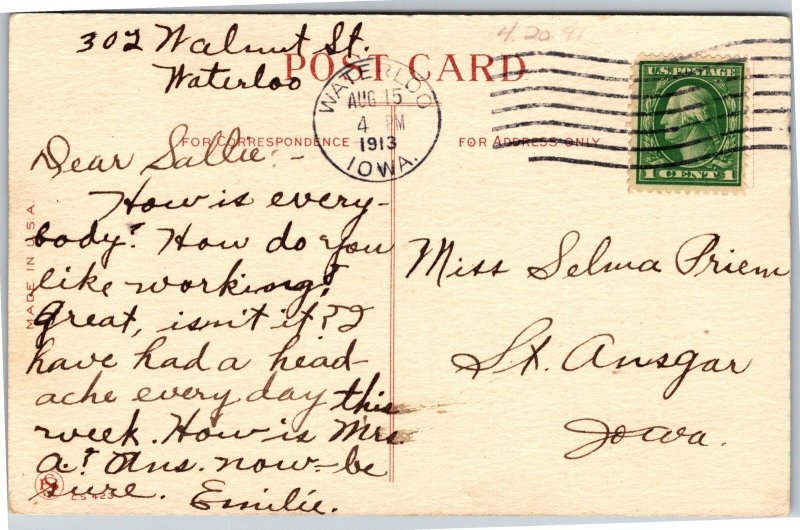 302 Walnut St.
Waterloo
4.20.91
POST CARD
WATERLOO
AUG 15
4 PM
1913
IOWA.
U.S. POSTAGE
1 CENT 1
FOR CORRESPONDENCE
FOR ADDRESS ONLY
MADE IN U.S.A.
Dear Sallie:-
How is every-
body? How do you
like working?
Great, isn't it? I
have had a head-
ache every day this
week. How is Mrs.
A.? Ans. now-be
sure. Emilie.
C.S. 423
Miss Selma Priem
St. Ansgar
Iowa.